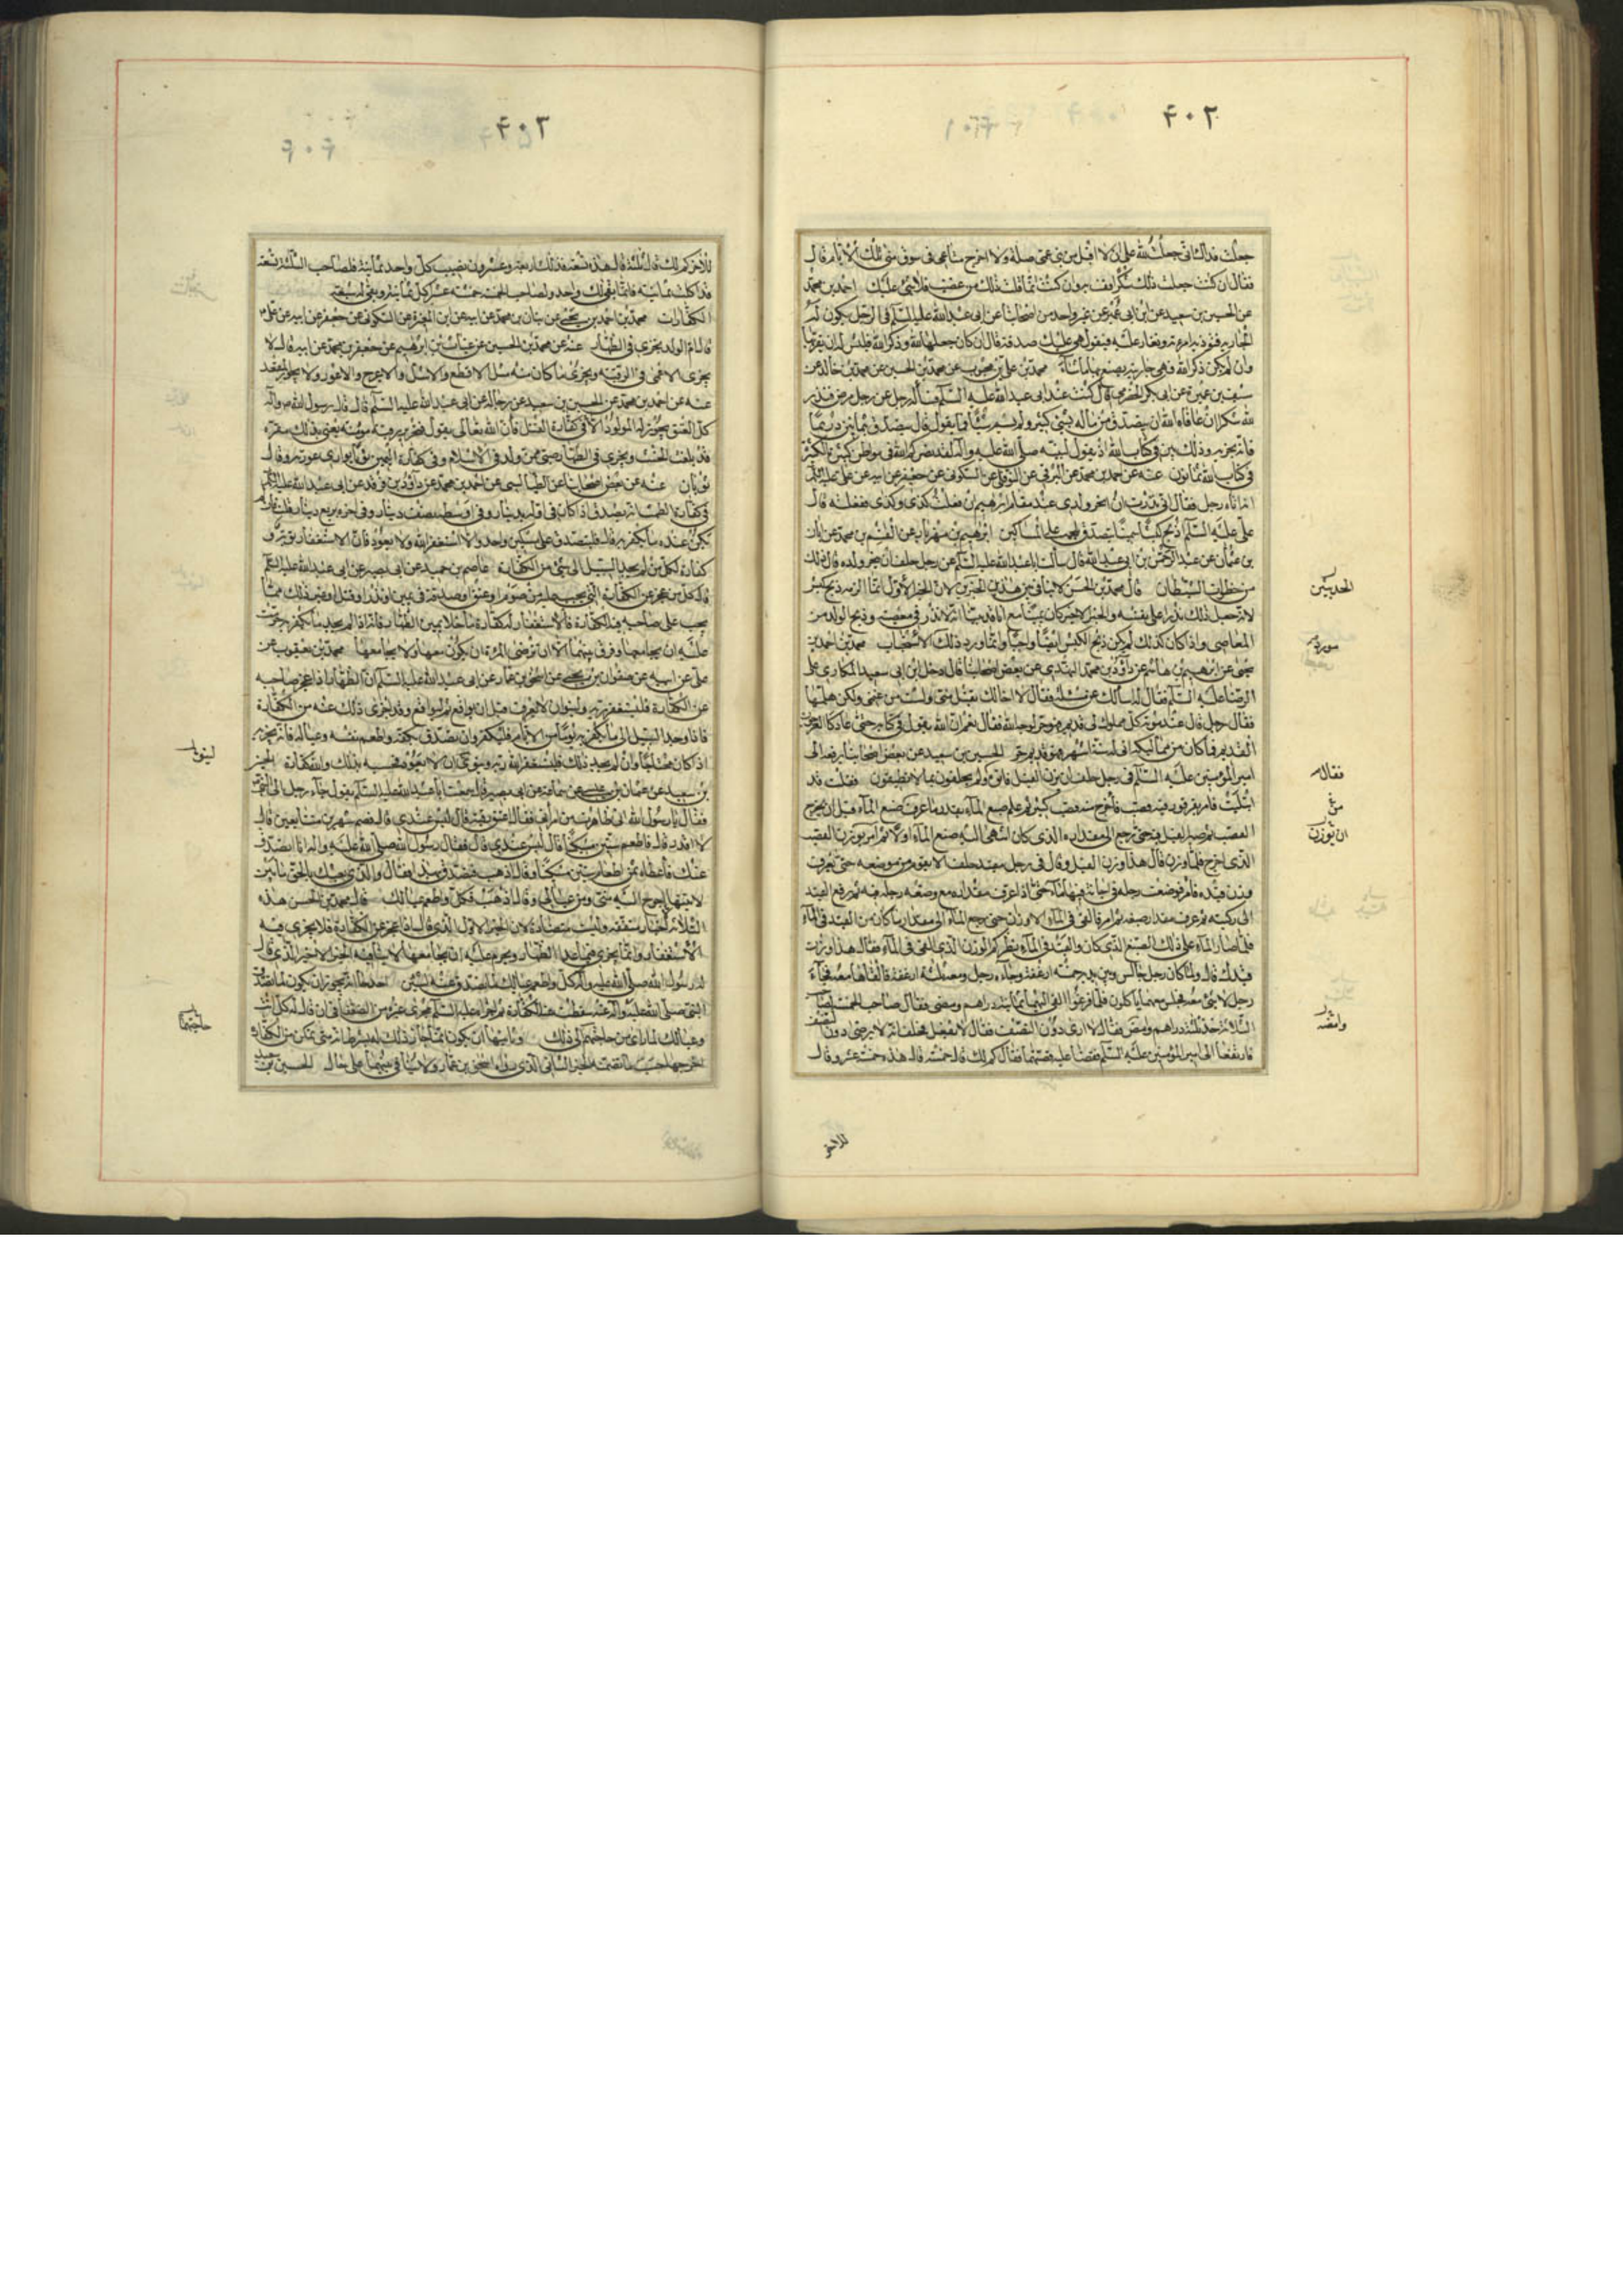 ٤٠٢
جعلت فداك انى جعلت لله على ان لا اقبل من بنى عمى صلة ولا اخرج متاعى فى سوق منى تلك الايام قال
فقال ان كنت جعلت ذلك شكرا فف به وان كنت انما قلت ذلك من غضب فلا شئ عليك احمد بن محمد
عن الحسين بن سعيد عن ابن ابى عمير عن غير واحد من اصحابنا عن ابى عبد الله عليه السلم فى الرجل يكون له
الجارية فتوذيه امرءته وتغار عليه فيقول هى عليك صدقة قال ان كان جعلها لله وذكر الله فليس له ان يقربها
وان لم يكن ذكر الله فهى جاريته يصنع بها ماشاء محمد بن على بن محبوب عن محمد بن الحسين عن محمد بن خالد عن
سيف بن عميرة عن ابى بكر الحضرمى قال كنت عند ابى عبد الله عليه السلم فسأله رجل عن رجل مرض فنذر
لله شكرا ان عافاه الله ان يتصدق من ماله بشئ كثير ولم يسم شيئا فما يقول قال يتصدق بثمانين درهما
فانه يجزيه وذلك بين فى كتاب الله اذ يقول لنبيه صلى الله عليه وآله لقد نصركم الله فى مواطن كثيرة والكثيرة
فى كتاب الله ثمانون عنه عن احمد بن محمد عن البرقى عن النوفلى عن السكونى عن جعفر عن ابيه عن على عليه السلم
انه اتاه رجل فقال انى نذرت ان انحر ولدى عند مقام ابرهيم ان فعلت كذى وكذى ففعلته قال
على عليه السلم اذبح كبشا سمينا يتصدق بلحمه على المساكين ابرهيم بن مهزيار عن القسم بن محمد عن ابان
بن عثمان عن عبد الرحمن بن ابى عبد الله قال سألت ابا عبد الله عليه السلم عن رجل حلف ان ينحر ولده قال ذلك
من خطوات الشيطان قال محمد بن الحسن لا تنافى بين هذين الخبرين لان الخبر الاول انما الزمه ذبح كبش
الحديثين
المعاصى واذا كان كذلك لم يكن ذبح الكبش ايضا واجبا وانما ورد ذلك الاستحباب محمد بن احمد بن
يحيى عن ابرهيم بن هاشم عن داود بن محمد النهدى عن بعض اصحابنا قال دخل ابن ابى سعيد المكارى على
الرضا عليه السلم فقال له اسالك عن مسئلة فقال لا اخالك تقبل منى ولست من غنمى ولكن هلمها
فقال رجل قال عند موته كل مملوك لى قديم فهو حر لوجه الله فقال نعم ان الله يقول فى كتابه حتى عاد كالعرجون
القديم فما كان من مماليكه اتى له ستة اشهر فهو قديم حر الحسين بن سعيد عن بعض اصحابنا يرفعه الى
امير المؤمنين عليه السلم فى رجل حلف ان يزن الفيل فاتوه به فقال ولم تحلفون بما لا تطيقون فقلت قد
فقال
ابتليت فامر بقرقور فيه قصب فأخرج منه قصب كثير ثم علم صبغ الماء بقدر ما عرف صبغ الماء قبل ان يخرج
ان توزن
الذى اخرج فلما وزن قال هذا وزن الفيل وقال فى رجل مقيد حلف الا يقوم من موضعه حتى يعرف
وزن قيده فامر فوضعت رجله فى اجانة فيها ماء حتى اذا عرف مقداره مع وضعه رجله فيه ثم رفع القيد
الى ركبته ثم عرف مقدار صبغه ثم امر فالقى فى الماء الاوزان حتى رجع الماء الى مقدار ما كان من القيد فى الماء
فلما صار الماء على ذلك الصبغ الذى كان والقيد فى الماء نظر كم الوزن الذى القى فى الماء فقال هذا وزن
قيدك قال ولما كان رجل جالس وبين يديه خمسة ارغفة وجاء رجل ومعه ثلثة ارغفة فالقاها معه فجاء
رجل لا شئ معه فجلس معهما ياكلون فلما فرغوا القى اليهما ثمانية دراهم ومضى فقال صاحب الخمسة لصاحب
الثلاثة خذ ثلثة دراهم وامض فقال لا ارى دون النصف فقال لا تفعل فحلف انه لا يرضى دون النصف
وامضه
فارتفعا الى امير المؤمنين عليه السلم فقصا عليه قصتهما فقال كم لك قال خمسة قال هذه خمسة عشر وقال
للاخر
٤٠٣
للاخر كم لك قال ثلثة قال هذه تسعة فذلك اربعة وعشرون نصيب كل واحد ثمانية فلصاحب الثلثة تسعة
قد اكلت ثمانية فانما بقى لك واحد ولصاحب الخمسة خمسة عشر اكل ثمانية وبقى له سبعة
الكفارات محمد بن احمد بن يحيى عن بنان بن محمد عن ابيه عن ابن المغيرة عن السكونى عن جعفر عن ابيه عن على ع
قال ام الولد يجزى فى الظهار عنه عن محمد بن الحسين عن غياث بن ابرهيم عن جعفر بن محمد عن ابيه قال لا
يجزى الاعمى فى الرقبة ويجزى ما كان منه مثل الاقطع والاشل والاعرج والاعور ولا يجوز المقعد
عنه عن احمد بن محمد عن الحسين بن سعيد عن رجاله عن ابى عبد الله عليه السلم قال قال رسول الله ص وآله
كل العتق يجوز له المولود الا فى كفارة القتل فان الله تعالى يقول فتحرير رقبة مؤمنة يعنى بذلك مقرة
قد بلغت الحنث ويجزى فى الظهار صبى ممن ولد فى الاسلام وفى كفارة اليمين ثوب يوارى عورته وقال
ثوبان عنه عن بعض اصحابنا عن الطيالسى عن احمد بن محمد عن داود بن فرقد عن ابى عبد الله عليه السلم
فى كفارة الطمث انه يتصدق اذا كان فى اوله بدينار وفى اوسطه نصف دينار وفى اخره بربع دينار قلت فان لم
يكن عنده ما يكفر به قال فليتصدق على مسكين واحد ولا استغفر الله ولا يعود فان الاستغفار توبة و
كفارة لكل من لم يجد السبيل الى شئ من الكفارة عاصم بن حميد عن ابى بصير عن ابى عبد الله عليه السلم
قال كل من عجز عن الكفارة التى يجب عليه من صوم او عتق او صدقة فى يمين او نذر او قتل او غير ذلك مما
يجب على صاحبه فيه الكفارة فالاستغفار له كفارة ما خلا يمين الظهار فانه اذا لم يجد ما يكفر به حرمت
عليه ان يجامعها وفرق بينهما الا ان ترضى المرءة ان يكون معها ولا يجامعها محمد بن يعقوب عن
على عن ابيه عن صفوان بن يحيى عن اسحق بن عمار عن ابى عبد الله عليه السلم ان الظهار اذا عجز صاحبه
عن الكفارة فليستغفر ربه ولينو ان لا يعود قبل ان يواقع ثم ليواقع وقد اجزى ذلك عنه من الكفارة
فاذا وجد السبيل الى ما يكفر به يوما من الايام فليكفر وان تصدق بكفه واطعم نفسه وعياله فانه يجزيه
اذا كان محتاجا وان لم يجد ذلك فليستغفر الله ربه وينوى ان لا يعود فحسبه بذلك والله كفارة الحسين
بن سعيد عن عثمان بن عيسى عن سماعة عن ابى بصير قال سمعت ابا عبد الله عليه السلم يقول جاء رجل الى النبى ص
فقال يا رسول الله انى ظاهرت من امرأتى فقال اعتق رقبة قال ليس عندى قال فصم شهرين متتابعين قال
لا اقدر قال فاطعم ستين مسكينا قال ليس عندى قال فقال رسول الله صلى الله عليه واله انا اتصدق
عنك فأعطاه تمرا لطعام ستين مسكينا وقال اذهب فتصدق بهذا فقال والذى بعثك بالحق ما بين
لابتيها احوج اليه منى ومن عيالى وقال اذهب فكل واطعم عيالك قال محمد بن الحسن هذه
الثلاثة الاخبار متفقة وليست متضادة لان الخبر الاول الذى قال اذا عجز عن الكفارة فلا يجزى فيه
الاستغفار وانما يجزى فيما عدا الظهار ويحرم عليه ان يجامعها لا ينافيه الخبر الاخير الذى قال
له رسول الله صلى الله عليه وآله كل واطعم عيالك لما تصدق عنه
النبى صلى الله عليه وآله عنه سقطت عنه الكفارة ثم اجراه عليه السلم مجرى غيره من الفقراء فى ان قال له كل انت
وعيالك لما راى من حاجتهم الى ذلك وثانيهما ان يكون انما اجاز ذلك له بشرط انه متى تمكن من الكفارة
حاجتهما
اخرجها حسب ما تضمنه الخبر الثانى الذى رواه اسحق بن عمار ولا تنافى بينهما على حال الحسين بن سعيد